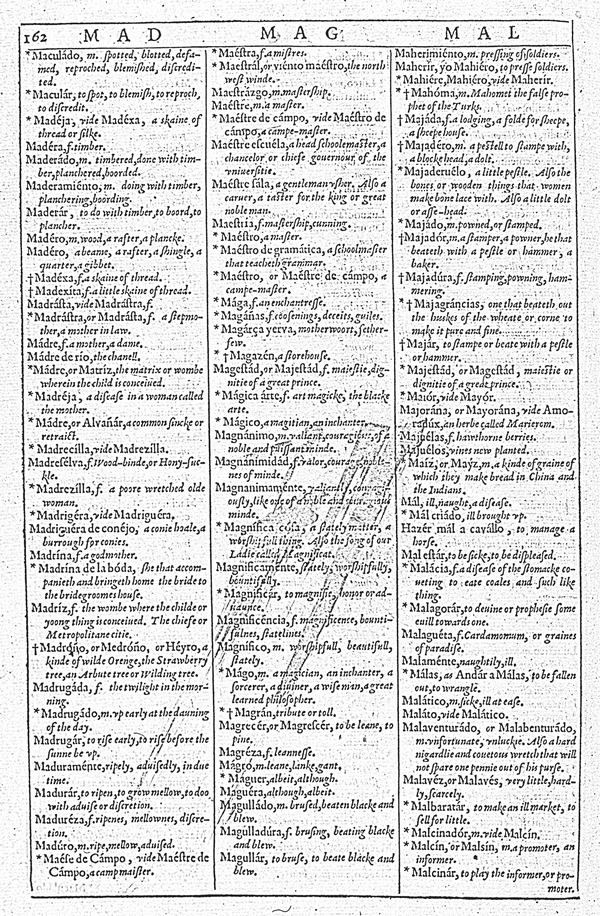 162 MAD MAG MAL
*Maculádo, m. spotted, blotted, defa-
med, reproched, blemished, discredi-
ted.
*Maculár, to spot, to blemish, to reproch,
to discredit.
*Madéja, vide Madéxa, a skaine of
thread or silke.
Madéra, f. timber.
Maderádo, m. timbered, done with tim-
ber, planchered, boorded.
Maderamiénto, m. doing with timber,
planchering, boording.
Maderár, to do with timber, to boord, to
plancher.
Madéro, m. wood, a rafter, a plancke.
Madéro, a beame, a rafter, a shingle, a
quarter, a gibbet.
†Madéxa, f. a skaine of thread.
†Madexíta, f. a little skaine of thread.
Madrásta, vide Madrástra, f.
*Madrástra, or Madrásta, f. a stepmo-
ther, a mother in law.
Mádre, f. a mother, a dame.
Mádre de río, the chanell.
*Mádre, or Matríz, the matrix or wombe
wherein the child is conceiued.
*Madréja, a disease in a woman called
the mother.
*Mádre, or Alvañár, a common sincke or
retraict.
*Madrecílla, vide Madrezílla.
Madresélva, f. Wood-binde, or Hony-suc-
kle.
*Madrezílla, f. a poore wretched olde
woman.
*Madrigéra, vide Madriguéra.
Madriguéra de conéjo, a conie hoale, a
burrough for conies.
Madrína, f. a godmother.
*Madrína de la bóda, she that accom-
panieth and bringeth home the bride to
the bridegroomes house.
Madríz, f. the wombe where the childe or
yoong thing is conceiued. The chiefe or
Metropolitane citie.
†Madróño, or Medróño, or Héyro, a
kinde of wilde Orenge, the Strawberry
tree, an Arbute tree or Wilding tree.
Madrugáda, f. the twilight in the mor-
ning.
*Madrugádo, m. vp early at the dauning
of the day.
Madrugár, to rise early, to rise before the
sunne be vp.
Maduraménte, ripely, aduisedly, in due
time.
Madurár, to ripen, to grow mellow, to doo
with aduise or discretion.
Maduréza, f. ripenes, mellownes, discre-
tion.
Madúro, m. ripe, mellow, aduised.
*Maése de Cámpo, vide Maéstre de
Cámpo, a camp maister.
*Maéstra, f. a mistres.
*Maestrál, or viénto maéstro, the north
west winde.
Maestrázgo, m. mastership.
Maéstre, m. a master.
*Maéstre de cámpo, vide Maéstro de
cámpo, a campe-master.
Maéstre escuéla, a head schoolemaster, a
chancelor or chiefe gouernour of the
vniuersitie.
Maéstre sála, a gentleman vsher. Also a
caruer, a taster for the king or great
noble man.
Maestría, f. mastership, cunning.
*Maéstro, a master.
*Maéstro de gramática, a schoolmaster
that teacheth grammar.
*Maéstro, or Maéstre de cámpo, a
campe-master.
*Mága, f. an enchantresse.
*Magáñas, f. coosenings, deceits, guiles.
*Magárça yerva, motherwoort, fether-
few.
*†Magazén, a storehouse.
Magestád, or Majestád, f. maiestie, dig-
nitie of a great prince.
*Mágica árte, f. art magicke, the blacke
arte.
*Mágico, a magitian, an inchanter.
Magnánimo, m. valiant, couragious, of a
noble and puissant minde.
Magnanimidád, f. valor, courage, noble-
nes of minde.
Magnanimaménte, valiantly, couragi-
ously, like one of a noble and couragious
minde.
*Magnífica cósa, a stately matter, a
worshipfull thing. Also the song of our
Ladie called Magnificat.
Magnificaménte, stately, worshipfully,
bountifully.
*Magnificár, to magnifie, honor or ad-
uaunce.
Magnificéncia, f. magnificence, bounti-
fulnes, statelines.
Magnífico, m. worshipfull, beautifull,
stately.
*Mágo, m. a magician, an inchanter, a
sorcerer, a diuiner, a wise man, a great
learned philosopher.
*†Magrán, tribute or toll.
Magrecér, or Magrescér, to be leane, to
pine.
Magréza, f. leannesse.
Mágro, m. leane, lanke, gant.
*Máguer, albeit, although.
Maguéra, although, albeit.
Magulládo, m. brused, beaten blacke and
blew.
Magulladúra, f. brusing, beating blacke
and blew.
Magullár, to bruse, to beate blacke and
blew.
Maherimiénto, m. pressing of soldiers.
Maherír, yo Mahiéro, to presse soldiers.
*Mahiére, Mahiéro, vide Maherír.
*†Mahóma, m. Mahomet the false pro-
phet of the Turks.
†Majáda, f. a lodging, a folde for sheepe,
a sheepe house.
†Majadéro, m. a pestell to stampe with,
a blockehead, a dolt.
*Majaderuélo, a little pestle. Also the
bones or wooden things that women
make bone lace with. Also a little dolt
or asse-head.
*Majádo, m. powned, or stamped.
†Majadór, m. a stamper, a powner, he that
beateth with a pestle or hammer, a
baker.
†Majadúra, f. stamping, powning, ham-
mering.
*†Majagráncias, one that beateth out
the huskes of the wheate or corne to
make it pure and fine.
†Majár, to stampe or beate with a pestle
or hammer.
*Majestád, or Magestád, maiestie or
dignitie of a great prince.
*Maiór, vide Mayór.
Majorána, or Mayorána, vide Amo-
radúx, an herbe called Marierom.
Majuélas, f. hawthorne berries.
Majuélos, vines new planted.
*Maíz, or Mayz, m. a kinde of graine of
which they make bread in China and
the Indians.
Mál, ill, naught, a disease.
*Mál criádo, ill brought vp.
Hazér mál a cavállo, to manage a
horse.
Mal estár, to be sicke, to be displeased.
*Malácia, f. a disease of the stomacke co-
ueting to eate coales and such like
thing.
*Malagorár, to deuine or prophesie some
euill towards one.
Malaguéta, f. Cardamomum, or graines
of paradise.
Malaménte, naughtily, ill.
*Málas, as Andár a Málas, to be fallen
out, to wrangle.
Malático, m. sicke, ill at ease.
Maláto, vide Malático.
Malaventurádo, or Malabenturádo,
m. vnfortunate, vnluckie. Also a hard
nigardlie and couetous wretch that will
not spare one pennie out of his purse.
Malavéz, or Malavés, very little, hard-
ly, scarcely.
*Malbaratár, to make an ill market, to
sell for little.
*Malcinadór, m. vide Malcín.
*Malcín, or Malsín, m. a promoter, an
informer.
*Malcinár, to play the informer, or pro-
moter.